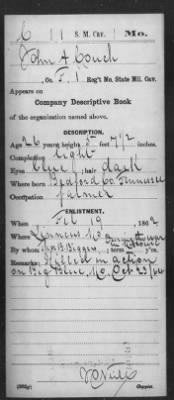 C 11 S. M. Cav. Mo.
John A Couch
, Co. F, 1 Reg't Mo. State Mil. Cav.
Appears on
Company Descriptive Book
of the organization named above.
DESCRIPTION.
Age 26 years; height 5 feet 7 1/2 inches.
Complexion light
Eyes blue ; hair dark
Where born Bedford Co Tennessee
Occupation farmer
ENLISTMENT.
When Feb 19 , 1862
Where Linneus Mo
By whom B. Biggers ; term y'rs.
Remarks: Killed in action
on Big Blue, Mo, Oct 23/64
Copyist.